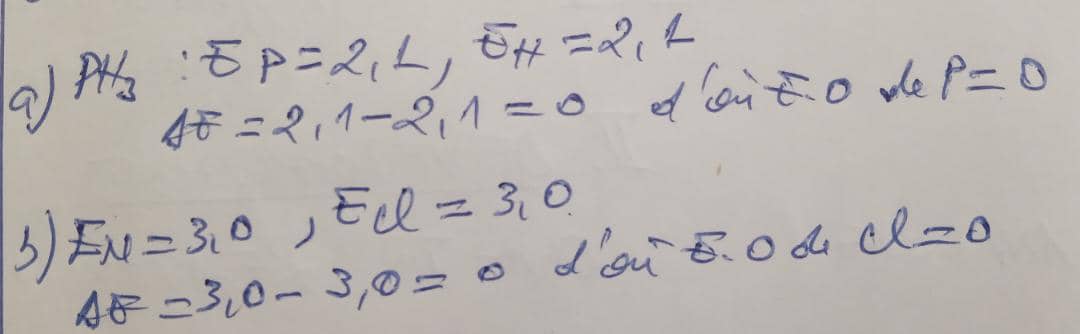 a) PH3 : E P = 2,1, EH = 2,1
ΔE = 2,1 - 2,1 = 0 d'où E.O de P = 0
b) EN = 3,0 , ECl = 3,0
ΔE = 3,0 - 3,0 = 0 d'où E.O de Cl = 0